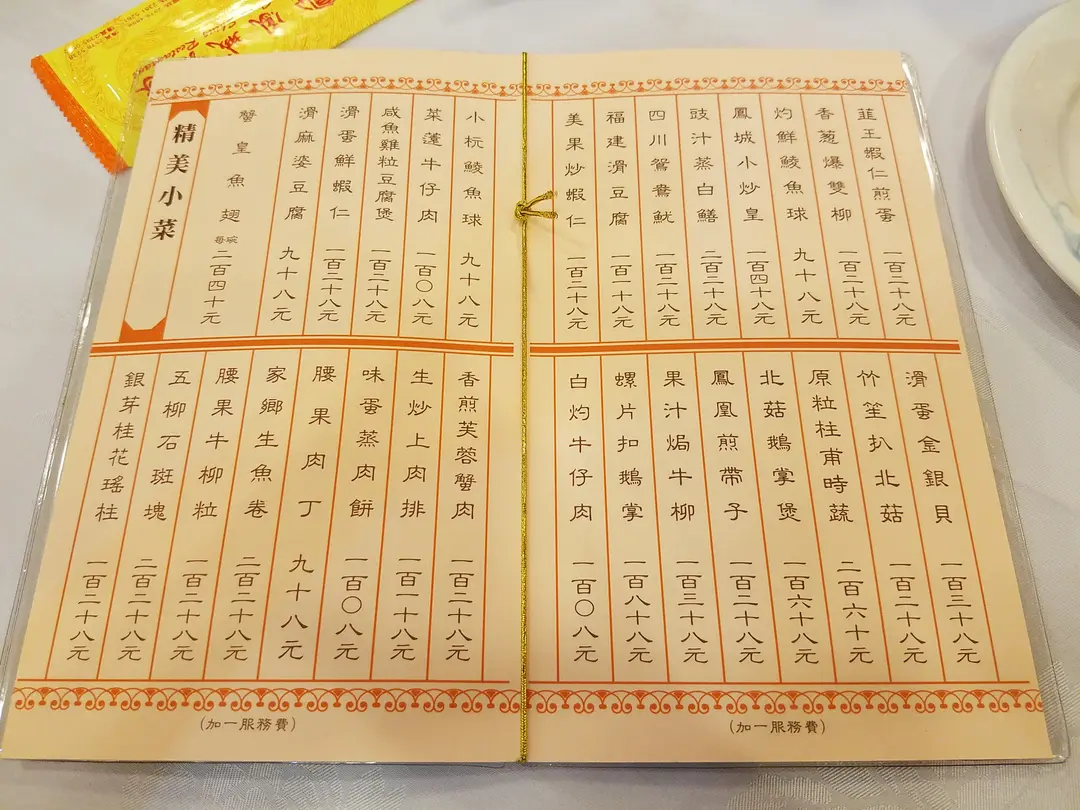 精美小菜
蟹皇魚翅 每碗 二百四十元
滑麻婆豆腐 九十八元
滑蛋鮮蝦仁 一百二十八元
咸魚雞粒豆腐煲 一百二十八元
菜蓬牛仔肉 一百〇八元
小杬鯪魚球 九十八元
銀芽桂花瑤柱 一百二十八元
五柳石斑塊 二百二十八元
腰果牛柳粒 一百二十八元
家鄉生魚卷 二百二十八元
腰果肉丁 九十八元
味蛋蒸肉餅 一百〇八元
生炒上肉排 一百一十八元
香煎芙蓉蟹肉 一百二十八元
(加一服務費)
美果炒蝦仁 一百二十八元
福建滑豆腐 一百一十八元
四川鴛鴦魷 一百二十八元
豉汁蒸白鱔 二百二十八元
鳳城小炒皇 一百四十八元
灼鮮鯪魚球 九十八元
香葱爆雙柳 一百二十八元
韮王蝦仁煎蛋 一百二十八元
白灼牛仔肉 一百〇八元
螺片扣鵝掌 一百八十八元
果汁焗牛柳 一百三十八元
鳳凰煎帶子 一百二十八元
北菇鵝掌煲 一百六十八元
原粒柱甫時蔬 二百六十元
竹笙扒北菇 一百二十八元
滑蛋金銀貝 一百三十八元
(加一服務費)